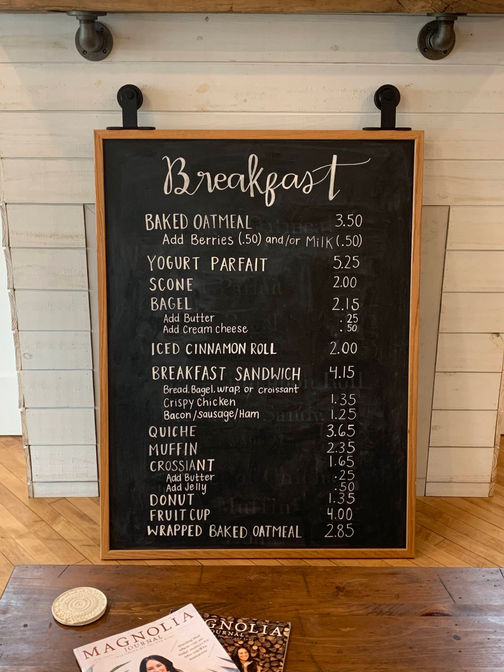 Breakfast
BAKED OATMEAL 3.50
Add Berries (.50) and/or Milk (.50)
YOGURT PARFAIT 5.25
SCONE 2.00
BAGEL 2.15
Add Butter .25
Add Cream cheese .50
ICED CINNAMON ROLL 2.00
BREAKFAST SANDWICH 4.15
Bread, Bagel, wrap, or croissant
Crispy Chicken 1.35
Bacon/Sausage/Ham 1.25
QUICHE 3.65
MUFFIN 2.35
CROSSIANT 1.65
Add Butter .25
Add Jelly .50
DONUT 1.35
FRUIT CUP 4.00
WRAPPED BAKED OATMEAL 2.85
MAGNOLIA
JOURNAL
MAGNOLIA
JOURNAL